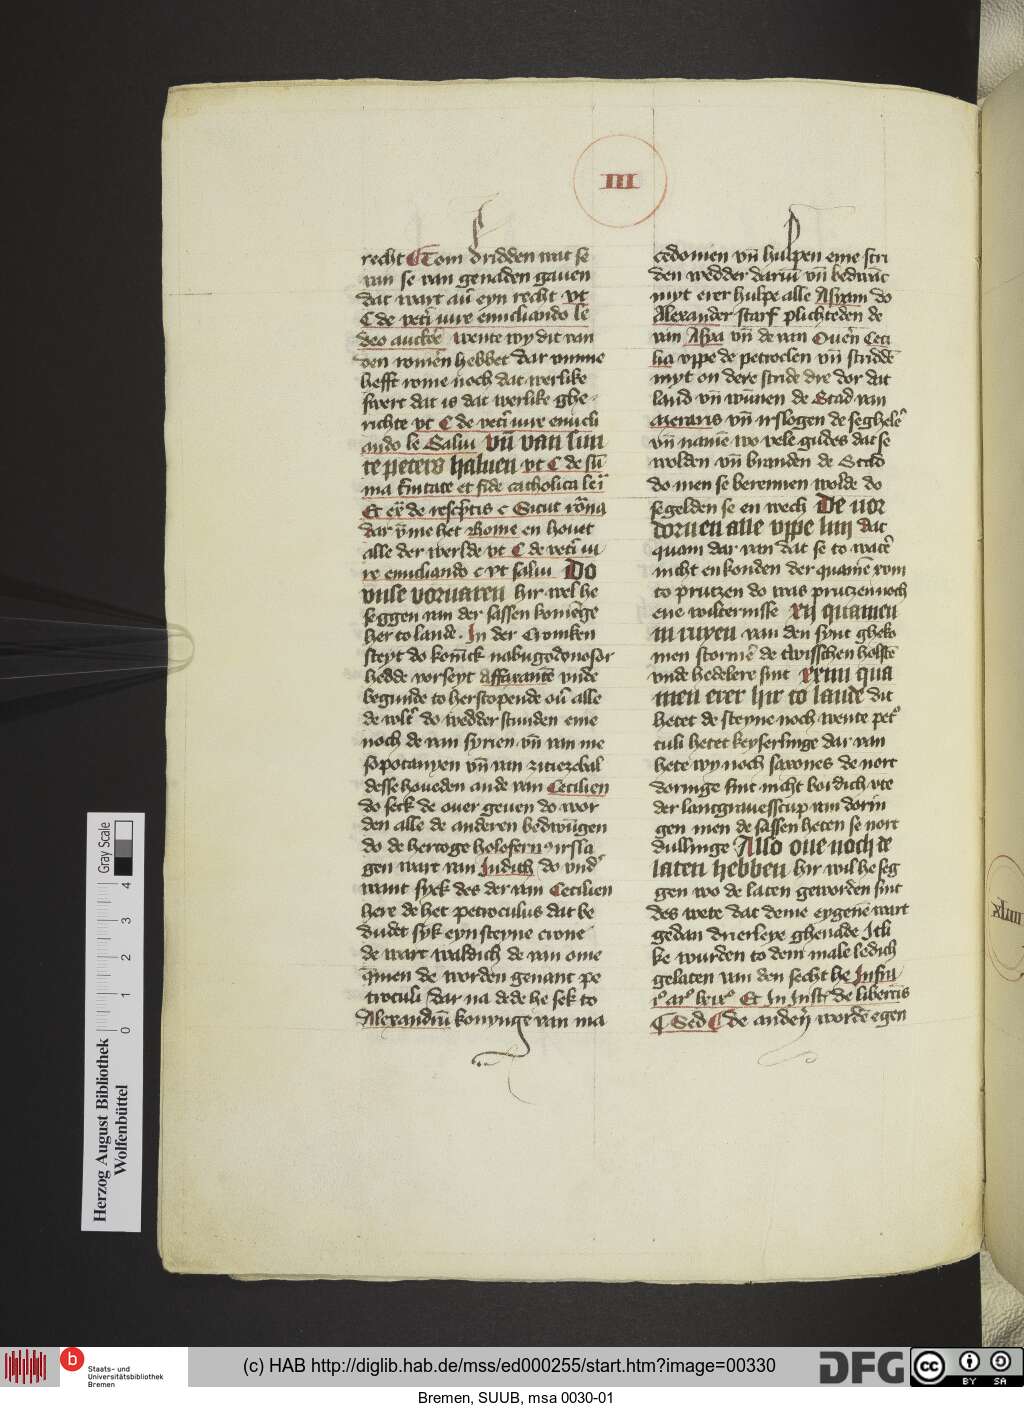 III
recht Tom dridden wat se
van se van genaden gauen
dat wart au̅ eyn recht vt
C de vet̉i iure enucliando le
deo auct̉e wente wy dit van
den rome̅n hebbet dar vmme
hefft rome noch dat werlike
swert dat is dat werlike ghe
richte vt C de vet̉i iure enucli
ando le Salui vn̅ van sun
te peters haluen vt C de su̅
ma t̉initate et fide catholica le i̅
dar v̅me het Rome en houet
alle der werlde vt C de vet̉i iu
re enucliando c vt salui Do
vnse voruaren hir wel he
seggen van der sassen kominge
her to lande. In der Croniken
steyt do konick nabugodonosor
hedde vorseyt affarante̅ vnde
begunde to herstopende ou̅ alle
de w̉lt do wedder stunden eme
noch de van syrien vn̅ van me
sopotanyen vn̅ van
desse houeden ande van Cecilien
do seck de ouer geuen do wor
den alle de anderen bedwu̅gen
do de hertoge holofern⁹ irsla
gen wart van Judich do vnd̉
want syck des der van Cecilien
here de het petroculus dat be
dudet syk eyn steyne crone
de wart waldich de van ome
q̅men de worden genant pe
troculi dar na dede he sek to
Alexandru̅ konynge van ma
cedonien vn̅ hulpen eme stri
den wedder dariu̅ vn̅ bedwa̅c
myt erer hulpe alle Asyam do
Alexander starf plichteden de
van Asya vn̅ de van Ouer̉n Ceci
lia vppe de petroclen vn̅ stridde̅
myt on dere stride dre dor dat
land vn̅ wu̅nen de Stad van
vn̅ irslogen de seghelẻ
vn̅ name̅ wo vele gudes dat se
wolden vn̅ branden de Stad
do men se berennen wolde do
segelden se en wech De vor
doruen alle vppe liiij dat
quam dar van dat se to watẻ
nicht en konden der quame̅ xviij
to prutzen do was prutzen noch
ene wilternisse xij quamen
in ruyen van den synt gheko
men storme̅ de twisschen holste̅
vnde hedelere sint xxiiij qua
men erer hir to lande dit
hetet de steyne noch wente pet̉
culi hetet keyserlinge dar van
hete wy noch saxones de nort
doringe sint nicht bordich vte
der lantgrauesscup van dorin
gen men de sassen heten se nort
dullinge Also oue noch de
laten hebben hir wil he seg
gen wo de laten geworden sint
des wete dat deme eygene̅ wart
gedan drierleye ghenade Itli
ke wurden to dem male ledich
gelaten van den secht he Infra
Et In Instr̅ de libertis
Sed C de ander̉ worde̅ egen
Gray Scale
0 1 2 3 4
Herzog August Bibliothek
Wolfenbüttel
b
Staats- und
Universitätsbibliothek
Bremen
(c) HAB http://diglib.hab.de/mss/ed000255/start.htm?image=00330
DFG
cc BY SA
Bremen, SUUB, msa 0030-01